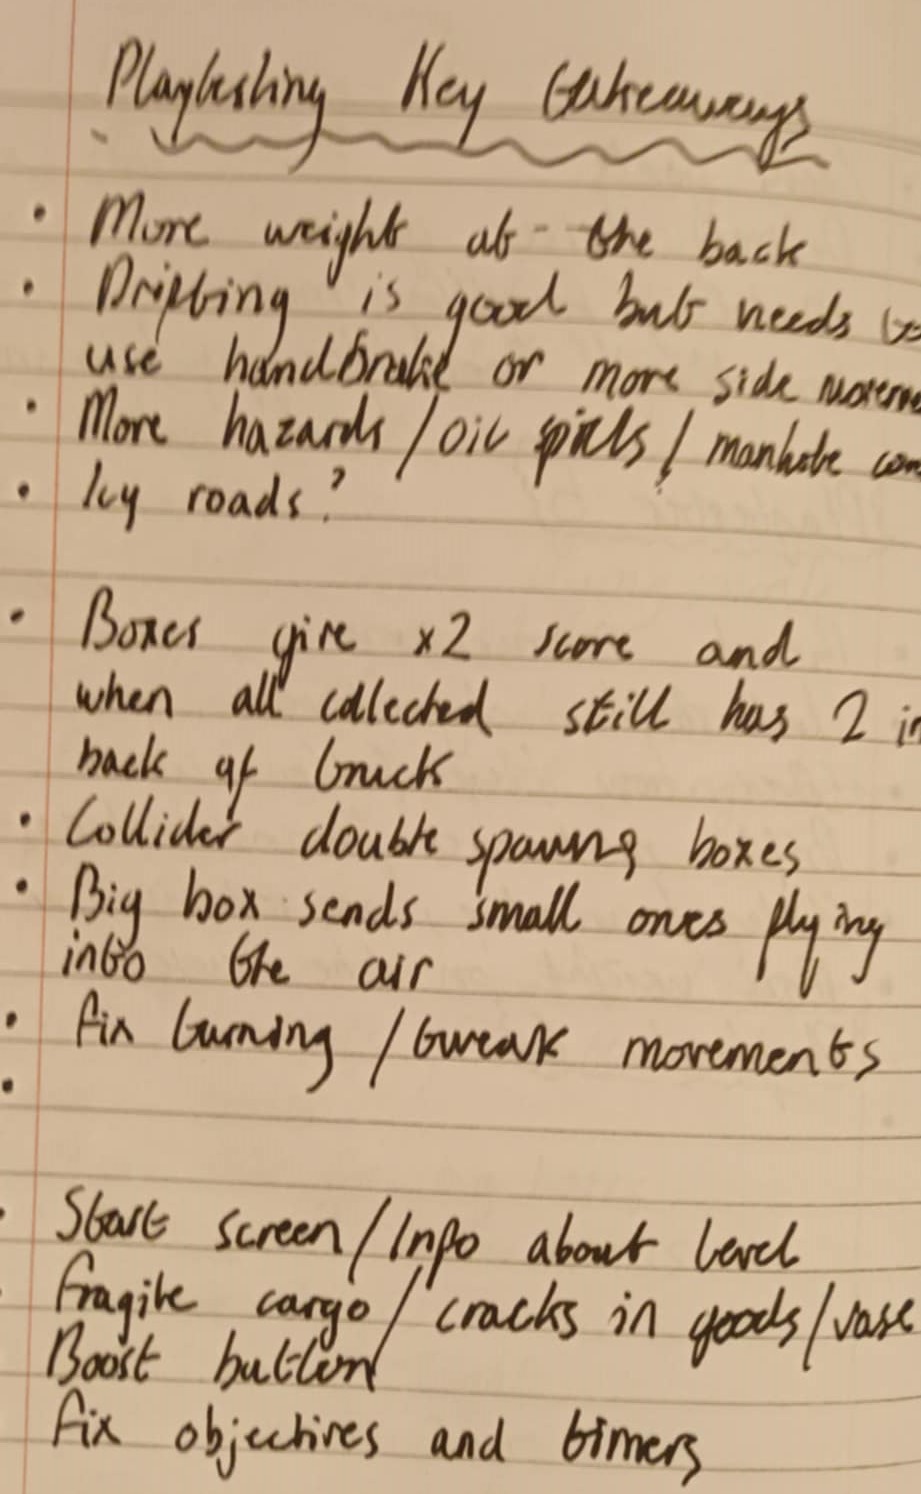 Playtesting Key takeaways
• More weight at the back
• Drifting is good but needs to
use handbrake or more side
• More hazards / oil spills / manhole
• Icy roads?
• Boxes give x2 score and
when all collected still has 2 in
back of truck
• Collider double spawning boxes
• Big box sends small ones flying
into the air
• Fix turning / tweak movements
•
Start screen / Info about level
Fragile cargo / cracks in goods / vase
Boost button
Fix objectives and timers